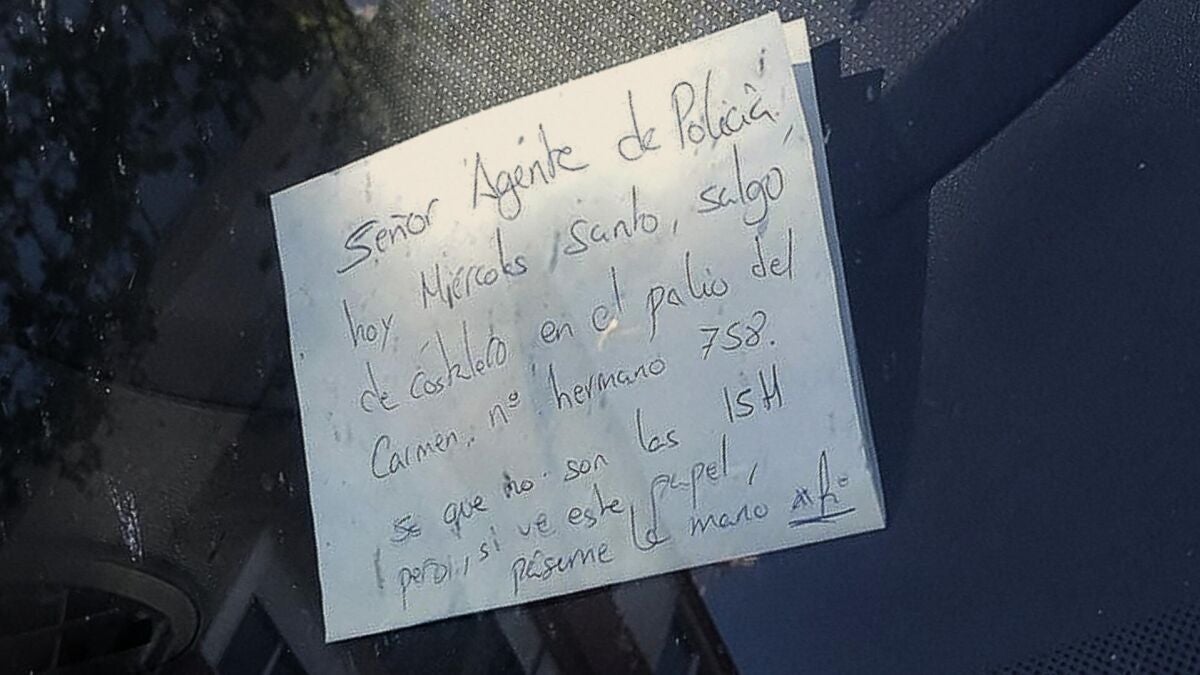 Señor Agente de Policía
hoy Miércoles Santo, salgo
de costalero en el palio del
Carmen, nº hermano 758.
se que no son las 15H
pero, si ve este papel,
páseme la mano